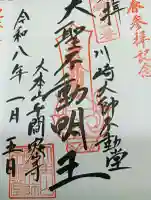 春参拝記念
拝
川崎大師不動堂
大聖不動明王
大本山平間寺
令和八年一月五日